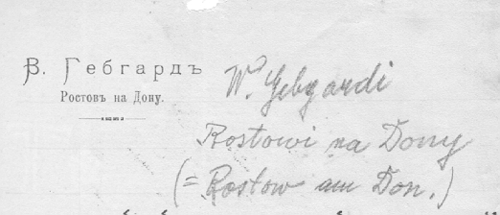 В. Гебгардъ
Ростовъ на Дону.
W. Gebgardi
Rostowi na Dony
(= Rostow am Don.)